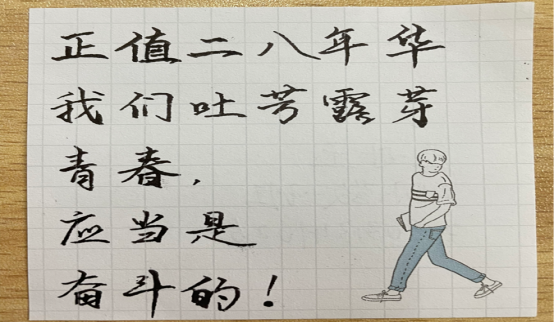 正值二八年华
我们吐芳露芽
青春，
应当是
奋斗的！